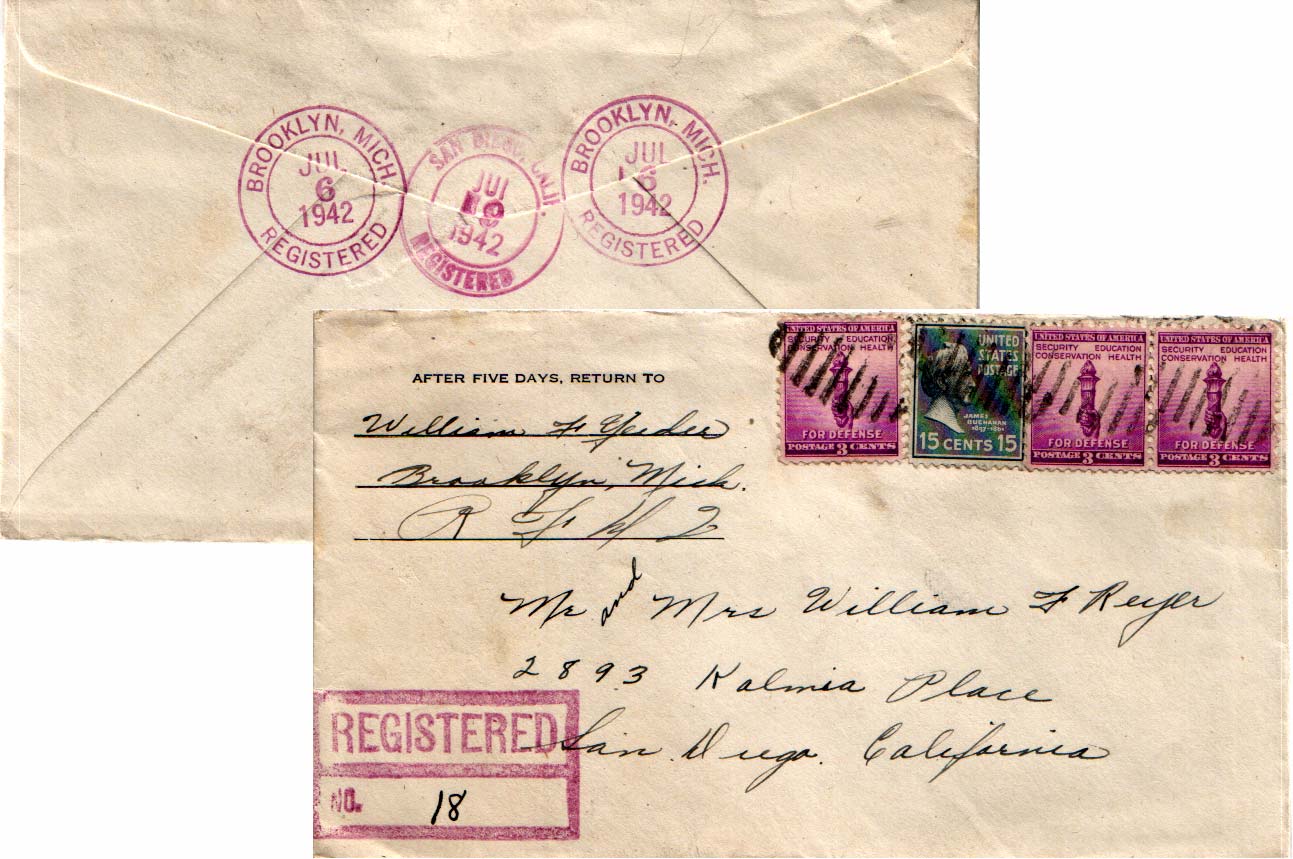 BROOKLYN, MICH.
JUL
6
1942
REGISTERED
SAN DIEGO, CALIF.
JUL
1942
REGISTERED
BROOKLYN, MICH.
JUL
6
1942
REGISTERED
UNITED STATES OF AMERICA
SECURITY EDUCATION
CONSERVATION HEALTH
FOR DEFENSE
POSTAGE 3 CENTS
UNITED
STATES
POSTAGE
JAMES
BUCHANAN
1857-1861
15 CENTS 15
UNITED STATES OF AMERICA
SECURITY EDUCATION
CONSERVATION HEALTH
FOR DEFENSE
POSTAGE 3 CENTS
UNITED STATES OF AMERICA
SECURITY EDUCATION
CONSERVATION HEALTH
FOR DEFENSE
POSTAGE 3 CENTS
AFTER FIVE DAYS, RETURN TO
William F
Brooklyn, Mich.
R F D 2
Mr and Mrs William F Reyer
2893 Kalmia Place
San Diego. California
REGISTERED
NO. 18